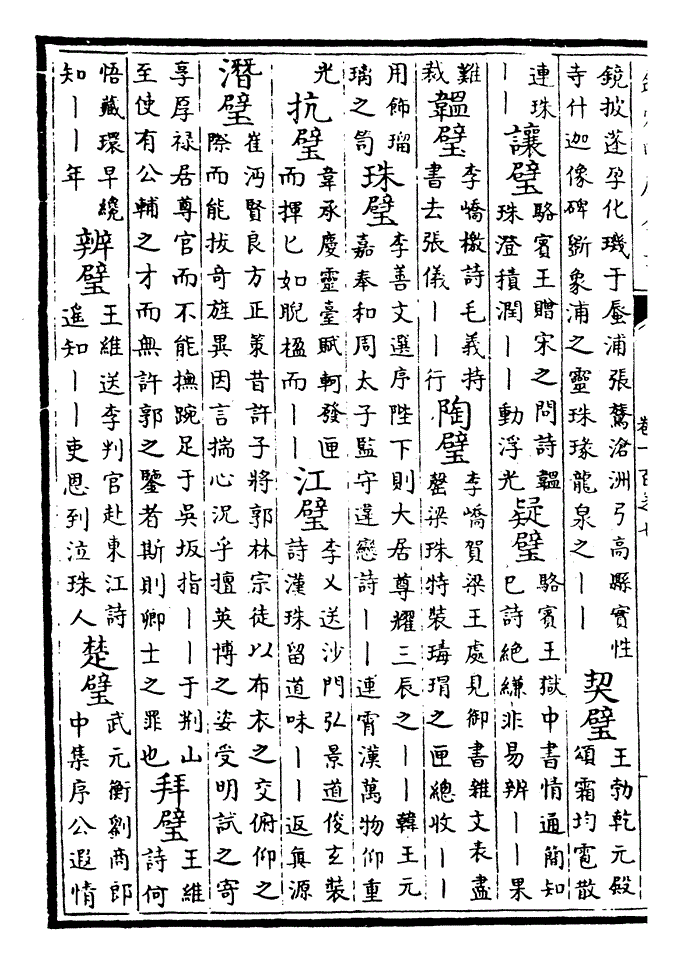 鏡披蓬孕化璣于蜃浦張鷟滄洲弓高縣實性
寺什迦像碑斲象浦之靈珠瑑龍泉之｜｜
契璧
王勃乾元殿
頌霜均雹散
連珠
｜｜
讓璧
駱賓王贈宋之問詩韞
珠澄積潤｜｜動浮光
疑璧
駱賓王獄中書情通簡知
已詩絶縑非易辨｜｜果
難
裁
韞璧
李嶠檄詩毛義持
書去張儀｜｜行
陶璧
李嶠賀梁王處見御書雜文表盡
罄梁珠特裝瑇瑁之匣總收｜｜
用飾瑠
璃之笥
珠璧
李善文選序陛下則大居尊耀三辰之｜｜韓王元
嘉奉和周太子監守違戀詩｜｜連霄漢萬物仰重
光
抗璧
韋承慶靈臺賦軻發匣
而揮匕如睨楹而｜｜
江璧
李乂送沙門弘景道俊玄裝
詩漢珠留道味｜｜返眞源
潛璧
崔沔賢良方正策昔許子將郭林宗徒以布衣之交俯仰之
際而能拔奇旌異因言揣心況乎擅英博之姿受明試之寄
享厚禄居尊官而不能撫踠足于吳坂指｜｜于荆山
至使有公輔之才而無許郭之鑒者斯則卿士之罪也
拜璧
王維
詩何
悟藏環早纔
知｜｜年
辨璧
王維送李判官赴東江詩
遥知｜｜吏恩到泣珠人
楚璧
武元衡劉商郎
中集序公遐情